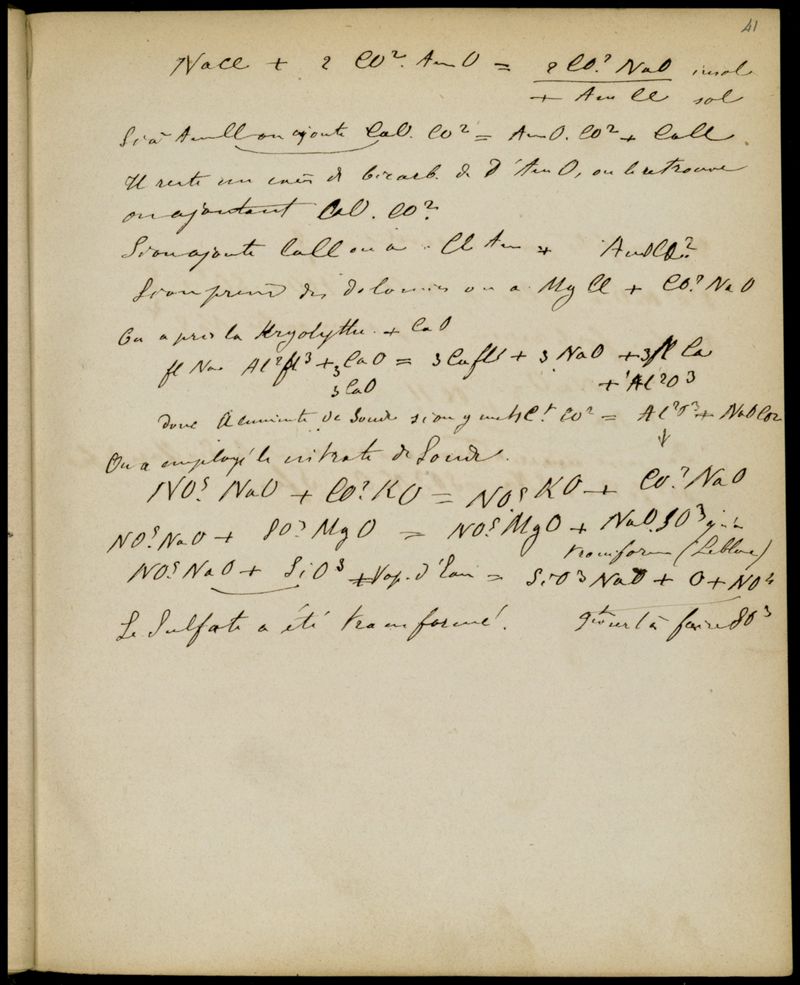 41
NaCl + 2 CO². AmO = 2 CO.² NaO insol
+ Am Cl sol
Si à AmCl on ajoute CaO. CO² = AmO. CO² + CaCl
Il reste un excès de bicarb. de d'AmO, on le retrouve
en ajoutant CaO. CO²
Si on ajoute CaCl on a . Cl Am + AmOCO.²
Si on prend des dolomies on a . Mg Cl + CO.² NaO
On a pris la Kryolythe . + CaO
fl Na Al²fl³ + 3CaO = 3 Cafl + 3 NaO + 3 fl Ca
3 CaO + Al²O³
donc Aluminate de Soude si on y met CO² = Al²O³ + NaOCO²
On a employé le nitrate de Soude.
NO⁵ NaO + CO.² KO = NO⁵ KO + CO.² NaO
NO⁵ NaO + SO³ MgO = NO⁵ MgO + NaO.SO³ qu'on
transforme (Leblanc)
NO⁵ NaO + SiO³ + Vap. d'Eau = SiO³ NaO + O + NO⁴
Le Sulfate a été transformé. qui sert à faire SO³